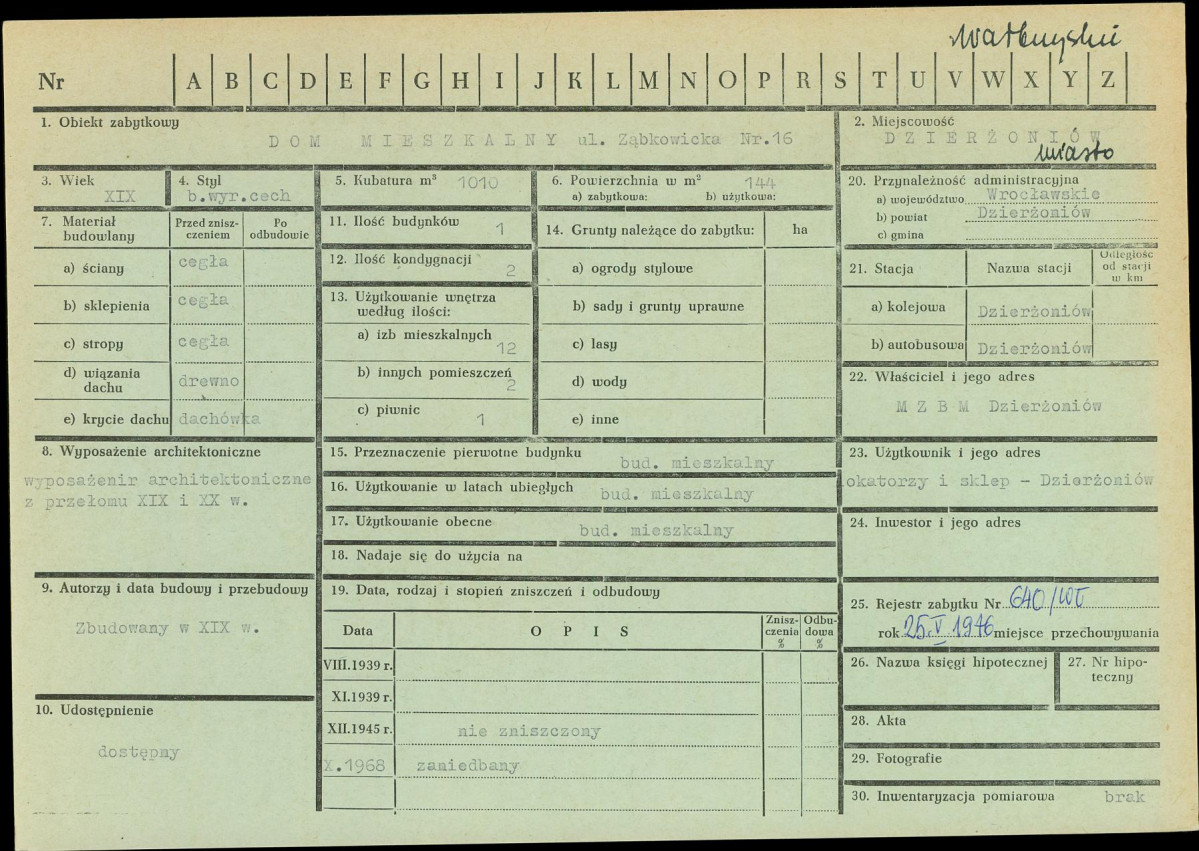 Wałbrzyskie
Nr A B C D E F G H I J K L M N O P R S T U V W X Y Z
1. Obiekt zabytkowy
DOM MIESZKALNY ul. Ząbkowicka Nr.16
2. Miejscowość
DZIERŻONIÓW
miasto
3. Wiek
XIX
4. Styl
b.wyr.cech
5. Kubatura m³ 1010
6. Powierzchnia w m² 144
a) zabytkowa: b) użytkowa:
20. Przynależność administracyjna
a) województwo Wrocławskie
b) powiat Dzierżoniów
c) gmina
7. Materiał budowlany
Przed znisz-
czeniem
Po
odbudowie
a) ściany cegła
b) sklepienia cegła
c) stropy cegła
d) wiązania
dachu drewno
e) krycie dachu dachówka
11. Ilość budynków 1
12. Ilość kondygnacji 2
13. Użytkowanie wnętrza
według ilości:
a) izb mieszkalnych 12
b) innych pomieszczeń 2
c) piwnic 1
14. Grunty należące do zabytku: ha
a) ogrody stylowe
b) sady i grunty uprawne
c) lasy
d) wody
e) inne
21. Stacja
Nazwa stacji
Odległość
od stacji
w km
a) kolejowa Dzierżoniów
b) autobusowa Dzierżoniów
22. Właściciel i jego adres
M Z B M Dzierżoniów
8. Wyposażenie architektoniczne
wyposażenir architektoniczne
z przełomu XIX i XX w.
15. Przeznaczenie pierwotne budynku bud. mieszkalny
16. Użytkowanie w latach ubiegłych bud. mieszkalny
17. Użytkowanie obecne bud. mieszkalny
18. Nadaje się do użycia na
23. Użytkownik i jego adres
lokatorzy i sklep - Dzierżoniów
24. Inwestor i jego adres
9. Autorzy i data budowy i przebudowy
Zbudowany w XIX w.
10. Udostępnienie
dostępny
19. Data, rodzaj i stopień zniszczeń i odbudowy
Data
OPIS
Znisz-
czenia
%
Odbu-
dowa
%
VIII.1939 r.
XI.1939 r.
XII.1945 r. nie zniszczony
X.1968 zaniedbany
25. Rejestr zabytku Nr 640/WŁ
rok 25.V 1946 miejsce przechowywania
26. Nazwa księgi hipotecznej
27. Nr hipo-
teczny
28. Akta
29. Fotografie
30. Inwentaryzacja pomiarowa brak